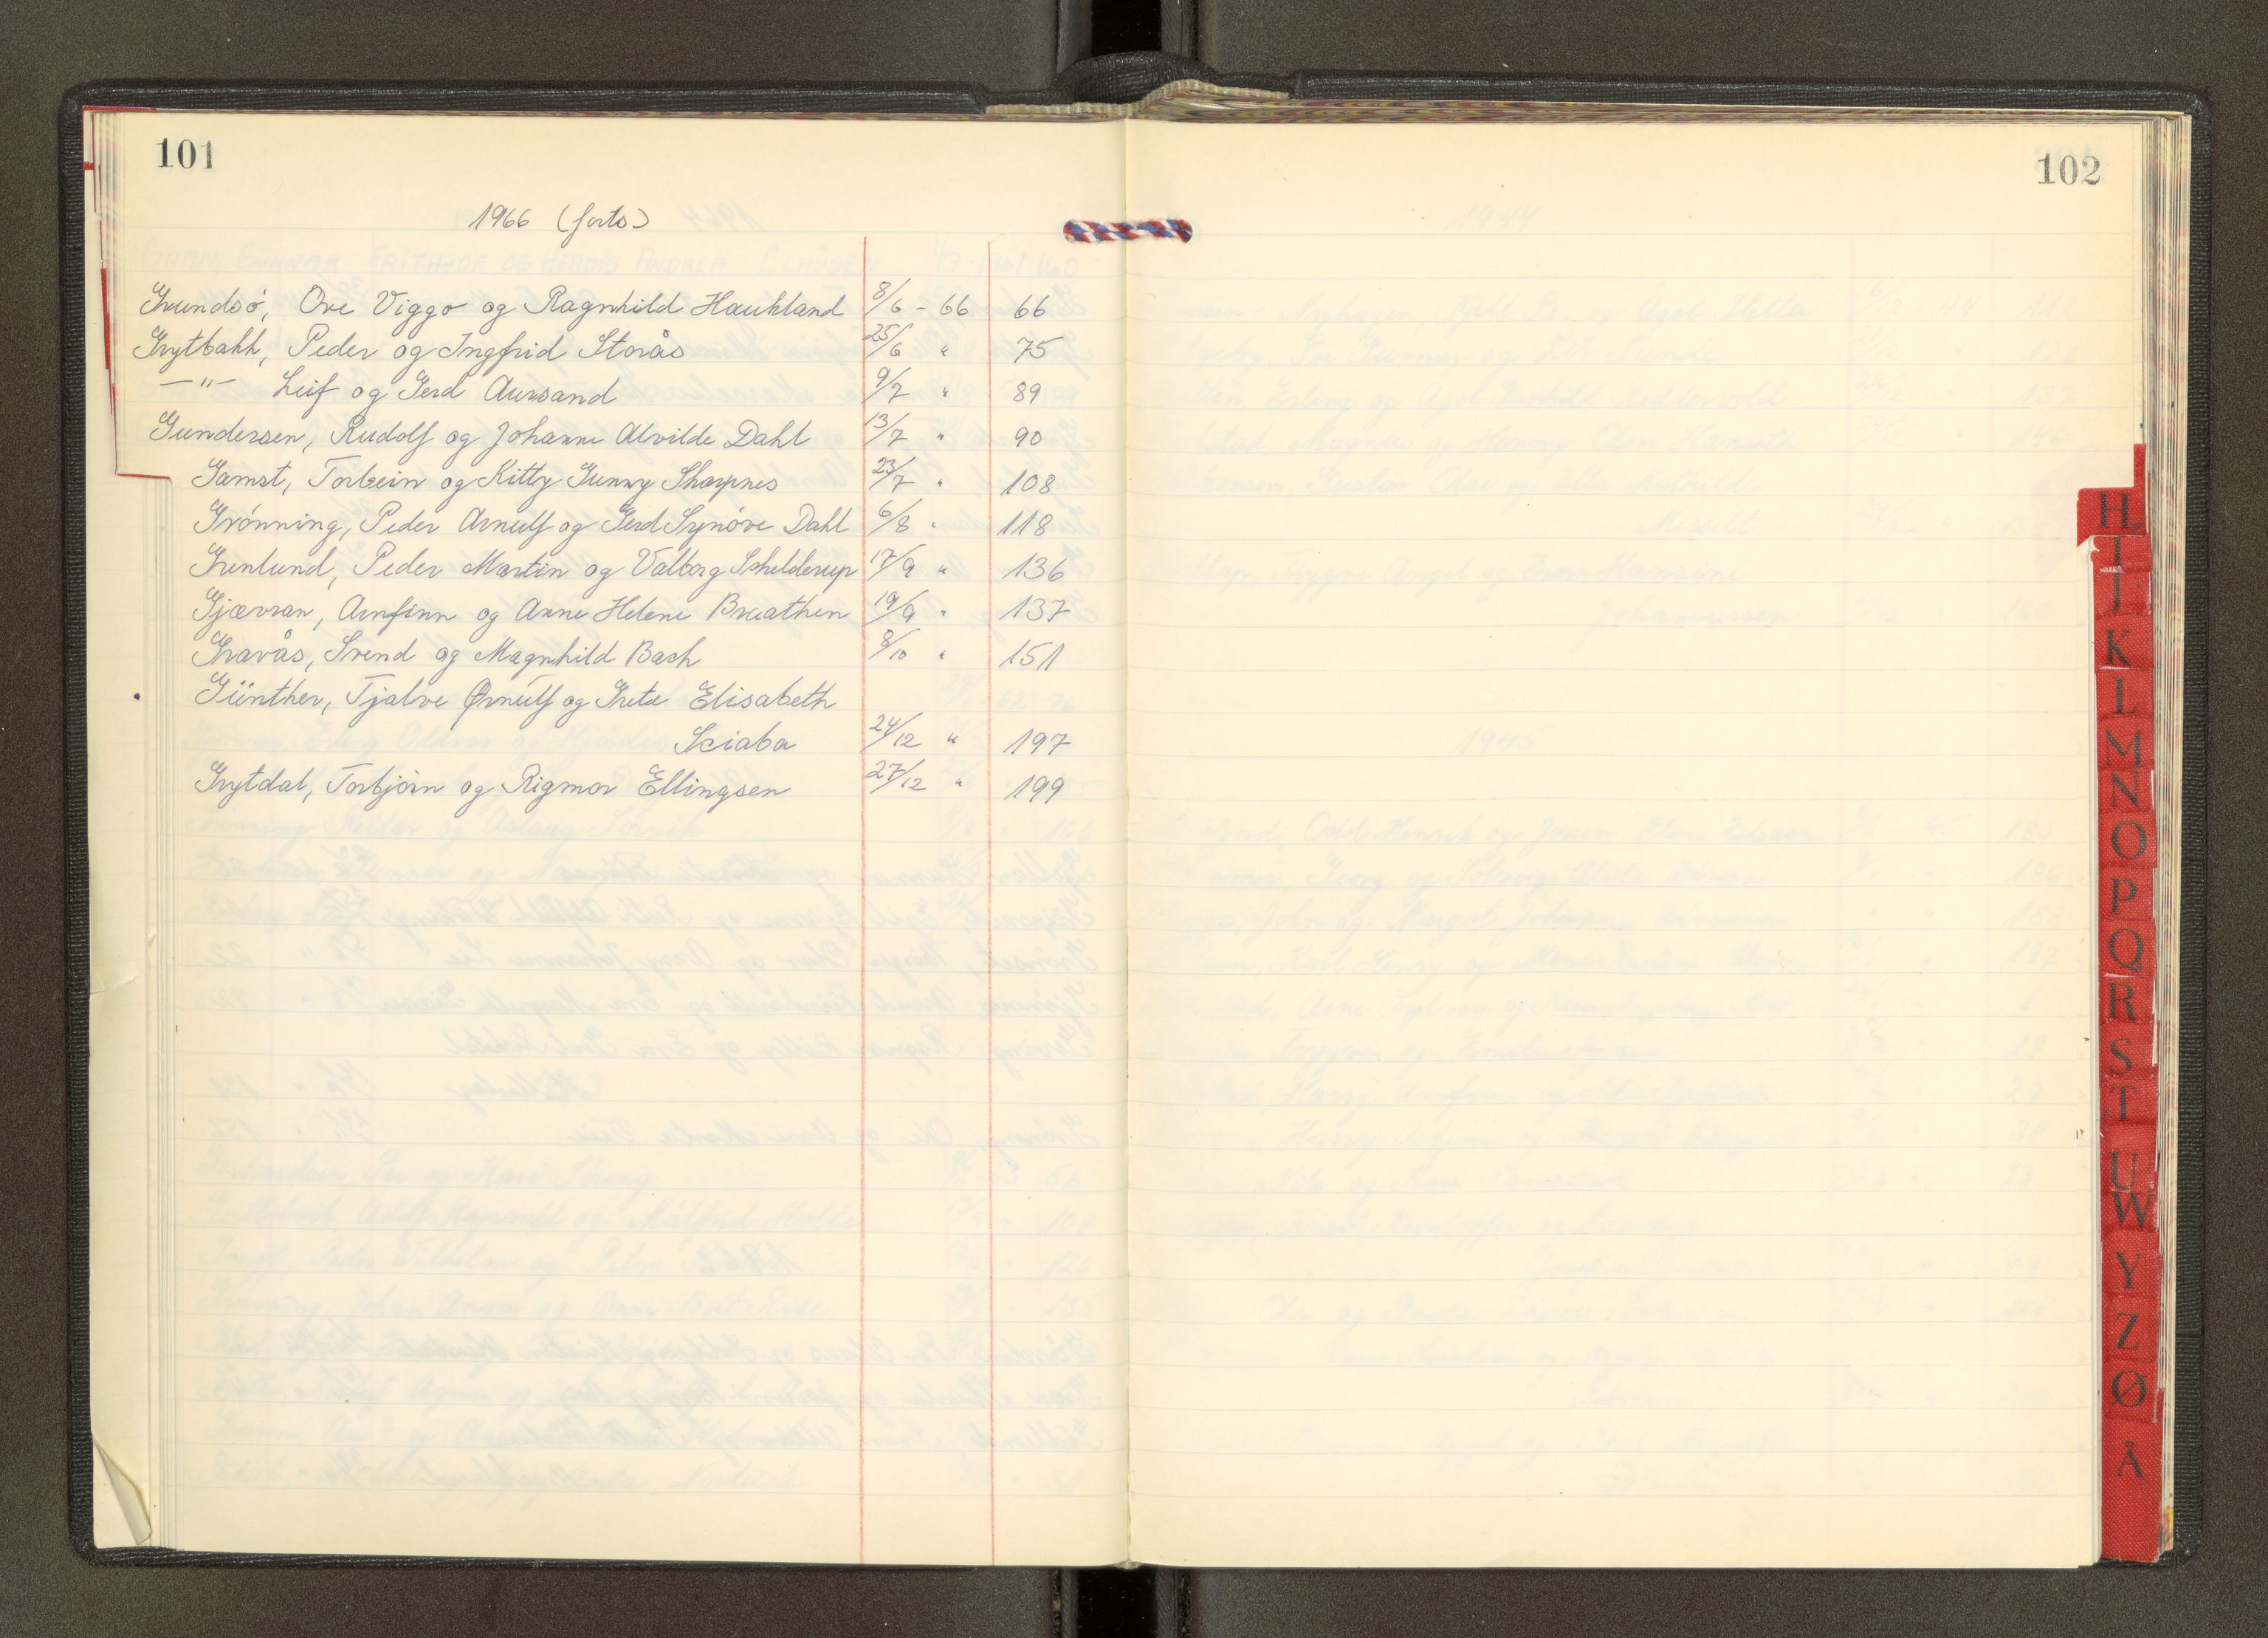 101
1966 (forts)
Grundsö, Ove Viggo og Ragnhild Haukland 8/6 - 66 66
Grytbakk, Peder og Ingfrid Storås 25/6 " 75
—"— Leif og Gerd Aursand 9/7 " 89
Gundersen, Rudolf og Johanne Alvilde Dahl 13/7 " 90
Gamst, Torbein og Kitty Gunny Skarpnes 23/7 " 108
Grönning, Peder Arnulf og Gerd Synöve Dahl 6/8 " 118
Grenlund, Peder Martin og Valborg Schelderup 17/9 " 136
Gjævran, Arnfinn og Anne Helene Braathen 19/9 " 137
Gravås, Svend og Magnhild Bach 8/10 " 151
Günther, Tjalve Ørnulf og Grete Elisabeth
Sciaba 24/12 " 197
Grytdal, Torbjörn og Rigmor Ellingsen 27/12 " 199
102
H
I
J
K
L
M
N
O
P
Q
R
S
T
U
W
Y
Z
Ø
Å